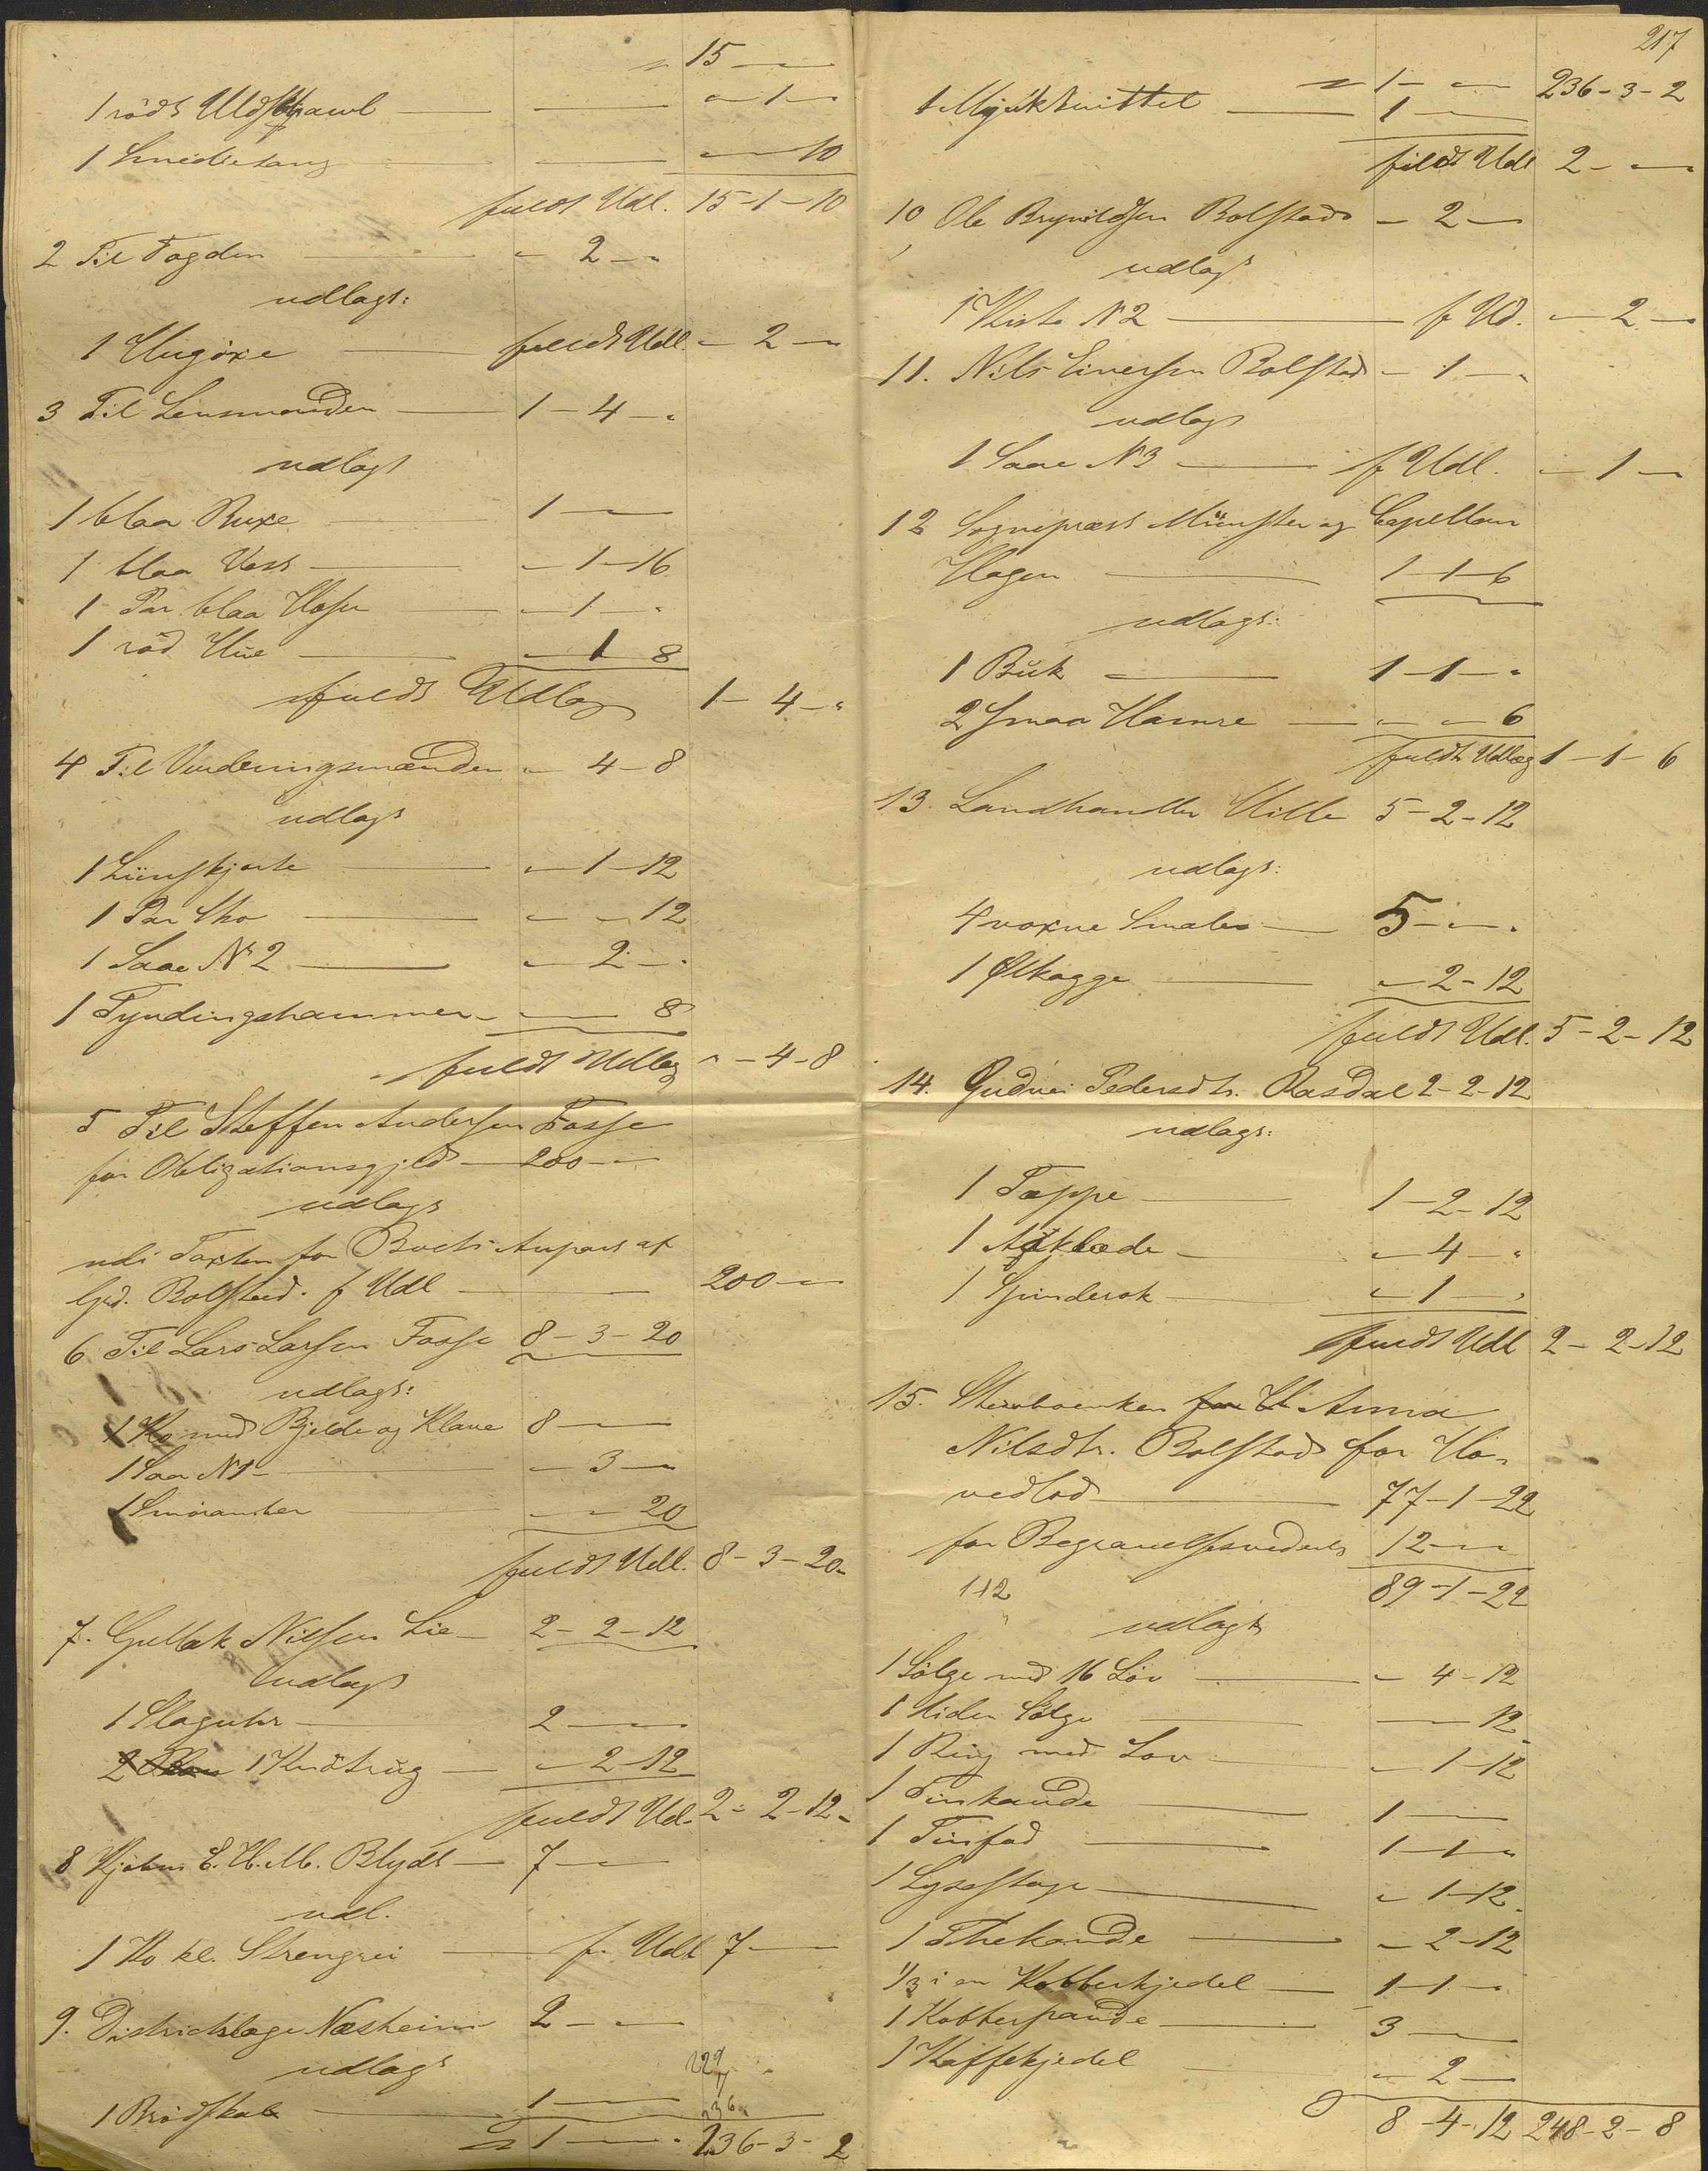 " 15 - -
1 rödt Uldsjawl - - " - 1 - "
1 Smedietang - - " - " - 10
fuldt Udl. 15 - 1 - 10
2 Til Fogden - " - 2 - "
udlagt:
1 Hugöxe - fuldt Udl. - 2 - "
3 Til Lensmanden - 1 - 4 - "
udlagt
1 blaa Buxe - 1 - "
1 blaa Vest - " - 1 - 16
1 Par blaa Hoser - " - 1 - "
1 röd Hue - " - 1 8
fuldt Udlæg 1 - 4 - "
4 Til Vurderingsmænden " - 4 - 8
udlagt
1 Liinskjorte - " - 1 - 12
1 Par Sko - " - " - 12
1 Saae N 2 - " - 2 - "
1 Tyndingshammer - " - " 8
fuldt Udlæg " - 4 - 8
5 Til Steffen Andersen Fosse
for Obligationsgjeld - 200 - "
udlagt
udi Taxten for Boets Anpart af
Grd. Bolstad. f Udl - - 200 - "
6 Til Lars Larsen Fosse 8 - 3 - 20
udlagt:
1 Ko med Bjelde og Klave 8 - "
1 Saa N 1 - " - 3 - "
1 Smöranker " - " - 20
fuldt Udl. 8 - 3 - 20 "
7. Gullak Nilsen Lie - 2 - 2 - 12
udlagt
1 Slaguhr - 2 - "
2 1 Knötrug - " - 2 - 12
fuldt Udl. 2 - 2 - 12 -
8 Kjöbm E. H. M. Blydt - 7 - "
udl.
1 Ko kl. Strengrei - f. Udl 7 - "
9. Districtslæge Næsheim 2 - "
udlagt
229
7
1 Brödskab - 1 - "
236
1 - " 236 - 3 - 2
217
1 - " 236 - 3 - 2
1 - 1 - "
fuldt Udl 2 - "
10 Ole Brynildsen Bolstad - 2 - "
udlagt
1 Kiste N 2 - f Ud. - 2 - "
11. Nils Eiversen Bolstad - 1 - "
udlagt
1 Saae N 3 - f Udl. - 1 - "
12 Sognepræst Münster og Capellan
Hagen - 1 - 1 - 6
udlagt:
1 Buk - 1 - 1 - "
2 smaa Hamre - " - " - 6
fuldt Udlæg 1 - 1 - 6
13. Landhandler Hille 5 - 2 - 12
udlagt:
4 voxne Smaler - 5 - " - "
1 Ølkagge - " - 2 - 12
fuldt Udl. 5 - 2 - 12
14. Gudvei Pedersdtr. Rasdal 2 - 2 - 12
udlagt:
1 Tæppe - 1 - 2 - 12
1 Aaklæde - " - 4 - "
1 Spinderok - " - 1 - "
fuldt Udl 2 - 2 - 12
15. Sterboenken for Anna
Nilsdtr. Bolstad for Ho-
vedlod - 77 - 1 - 22
for Begravelsesvederl. 12 - "
112 89 - 1 - 22
udlagt
1 Sölge med 16 Löv - " - 4 - 12
1 liden Sölge - " - 12
1 Ring med Löv - " - 1 - 12
1 Tinkande - 1 - "
1 Tinfad - 1 - 1 - "
1 Lysestage - " - 1 - 12
1 Thekande - " - 2 - 12
1/3 i en Kobberkjedel - 1 - 1 - "
1 Kobberpande - 3 - "
1 Kaffekjedel " - 2 - "
8 - 4 - 12 248 - 2 - 8